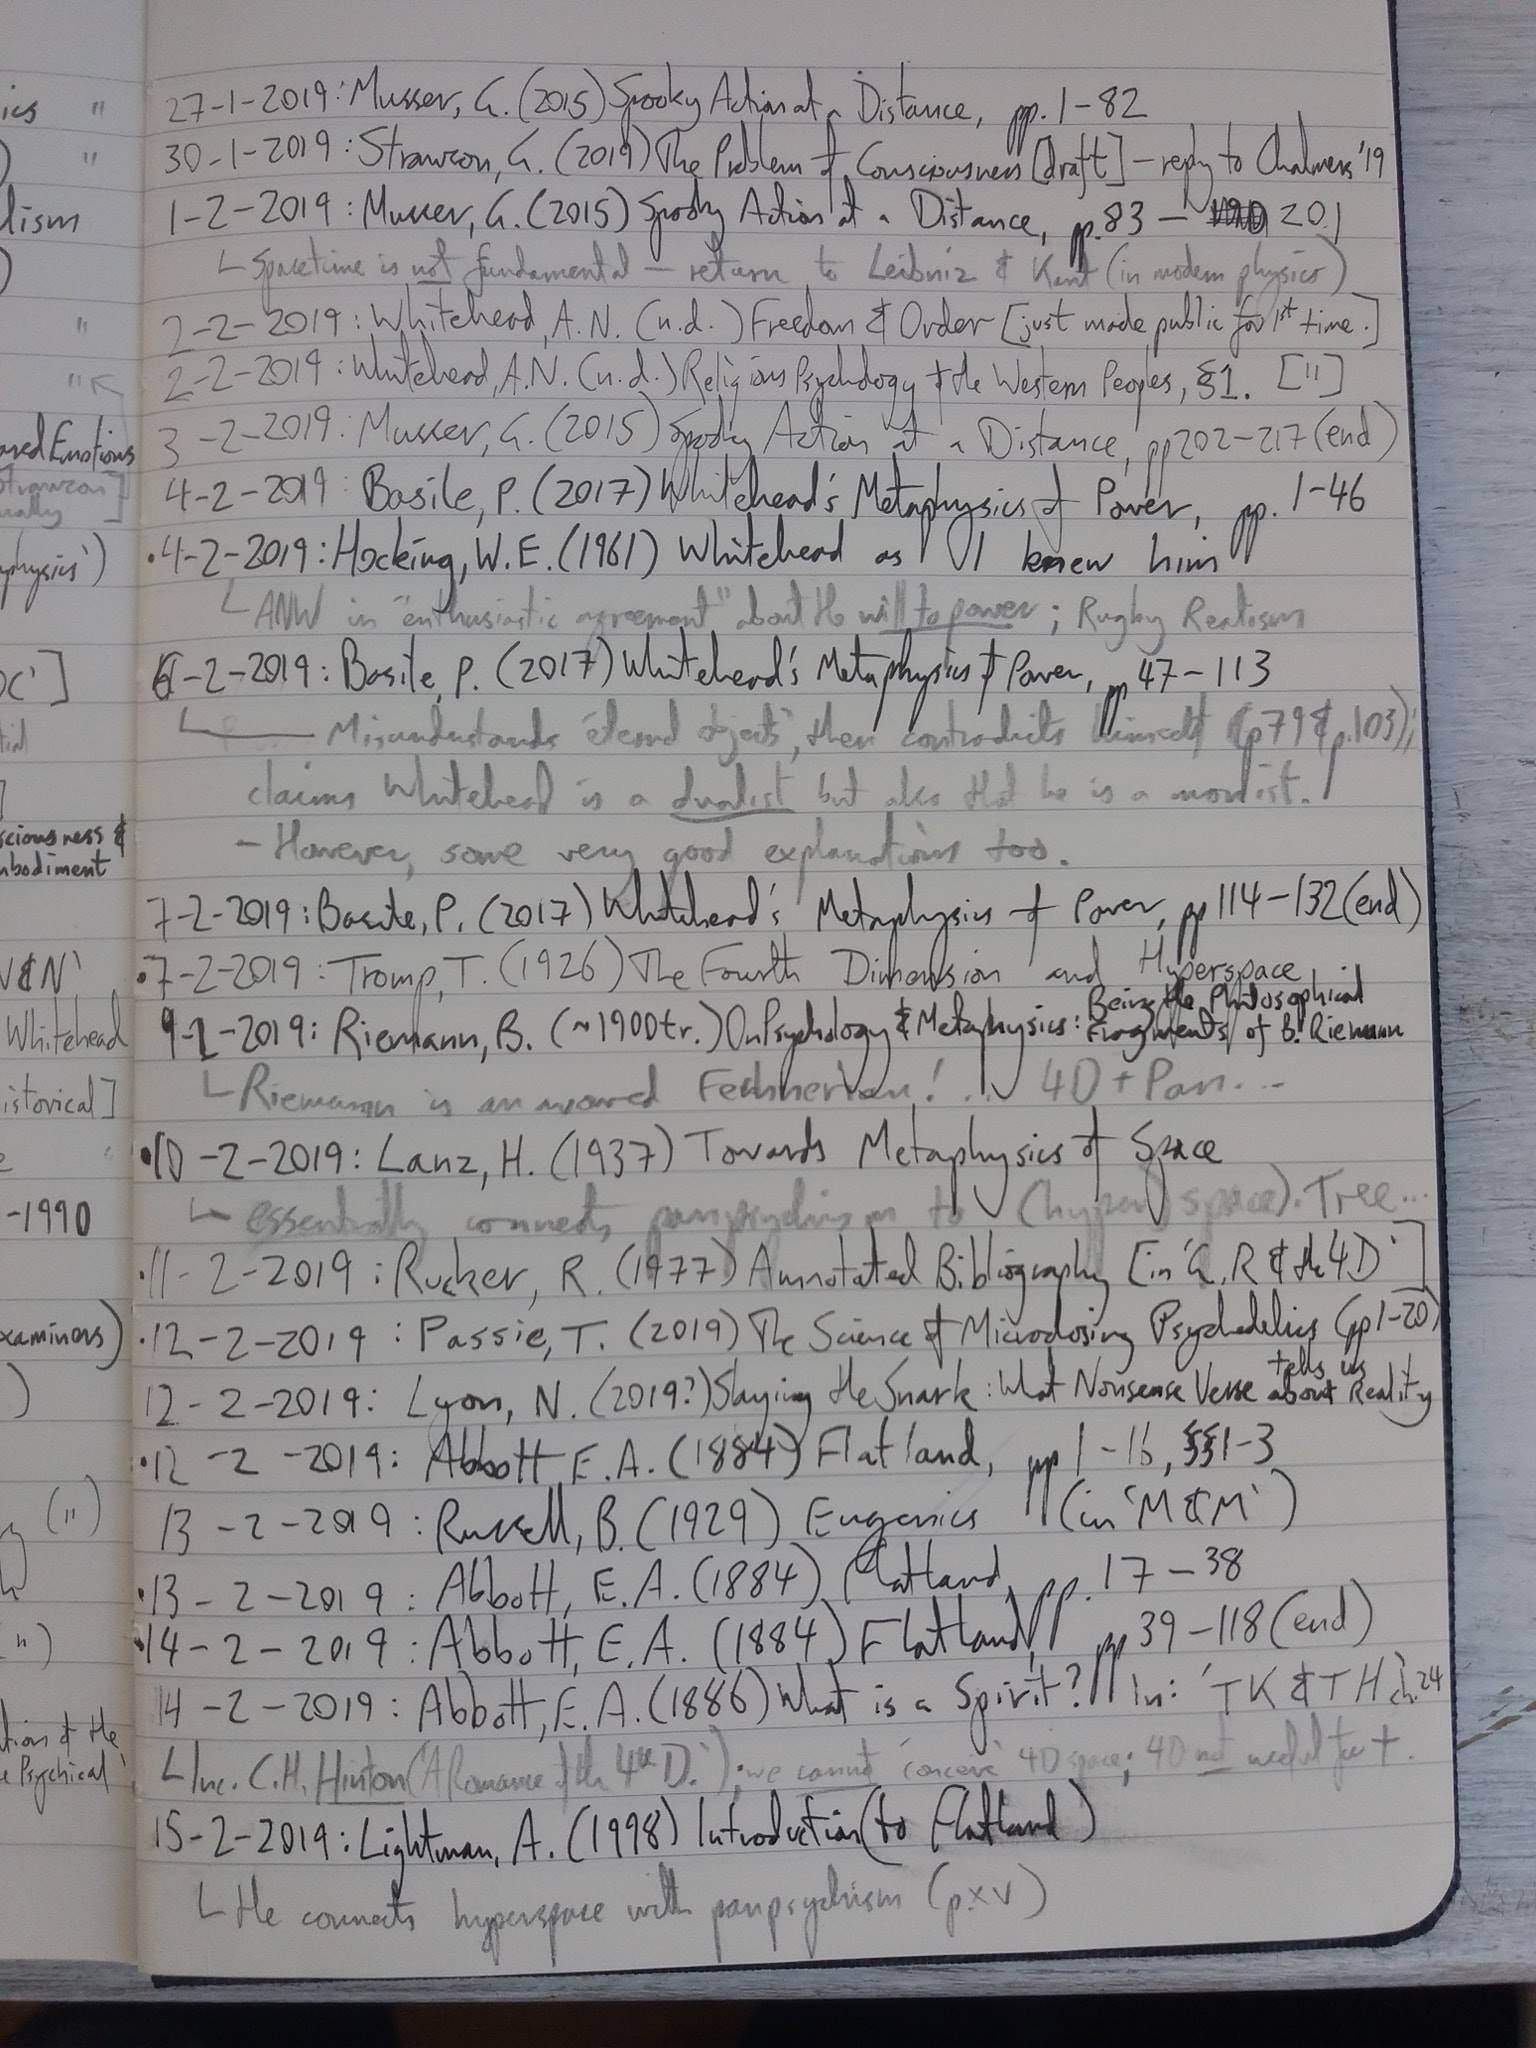 ics "
27-1-2019: Musser, G. (2015) Spooky Action at a Distance, pp. 1-82
) "
30-1-2019: Strawson, G. (2019) The Problem of Consciousness [draft] - reply to Chalmers '19
lism
1-2-2019: Musser, G. (2015) Spooky Action at a Distance, pp. 83 - 201
)
└ Spacetime is not fundamental - return to Leibniz & Kant (in modern physics)
"
2-2-2019: Whitehead, A.N. (n.d.) Freedom & Order [just made public for 1st time.]
"
2-2-2019: Whitehead, A.N. (n.d.) Religious Psychology of the Western Peoples, §1. ["]
ared Emotions
3-2-2019: Musser, G. (2015) Spooky Action at a Distance, pp 202-217 (end)
Strawson]
ually
4-2-2019: Basile, P. (2017) Whitehead's Metaphysics of Power, pp. 1-46
physics')
·4-2-2019: Hocking, W.E. (1961) Whitehead as I knew him
└ ANW in "enthusiastic agreement" about the will to power; Rugby Realism
OC']
6-2-2019: Basile, P. (2017) Whitehead's Metaphysics of Power, pp 47-113
tial
└ Misunderstands 'eternal objects', then contradicts himself (p79 & p.103);
]
claims Whitehead is a dualist but also that he is a monist.
sciousness &
mbodiment
- However, some very good explanations too.
7-2-2019: Basile, P. (2017) Whitehead's Metaphysics of Power, pp 114-132 (end)
V&N'
·7-2-2019: Tromp, T. (1926) The Fourth Dimension and Hyperspace
Whitehead
9-2-2019: Riemann, B. (~1900 tr.) On Psychology & Metaphysics: Being the Philosophical Fragments of B. Riemann
istorical]
└ Riemann is an avowed Fechnerian! ... 4D + Pan...
·10-2-2019: Lanz, H. (1937) Towards Metaphysics of Space
-1990
└ essentially connects panpsychism to (hyper) space). Tree...
·11-2-2019: Rucker, R. (1977) Annotated Bibliography [in 'G, R & the 4D']
xaminers)
·12-2-2019: Passie, T. (2019) The Science of Microdosing Psychedelics (pp 1-20)
)
12-2-2019: Lyon, N. (2019?) Slaying the Snark: What Nonsense Verse tells us about Reality
·12-2-2019: Abbott, E.A. (1884) Flatland, pp 1-16, §§1-3
(")
13-2-2019: Russell, B. (1929) Eugenics (in 'M & M')
·13-2-2019: Abbott, E.A. (1884) Flatland, pp. 17-38
")
·14-2-2019: Abbott, E.A. (1884) Flatland, pp 39-118 (end)
14-2-2019: Abbott, E.A. (1886) What is a Spirit? In: 'TK & TH', ch. 24
tion of the
e Psychical'
└ Inc. C.H. Hinton ('A Romance of the 4th D.'); we cannot 'conceive' 4D space; 4D not needed for †.
15-2-2019: Lightman, A. (1998) Introduction (to Flatland)
└ He connects hyperspace with panpsychism (p.xv)